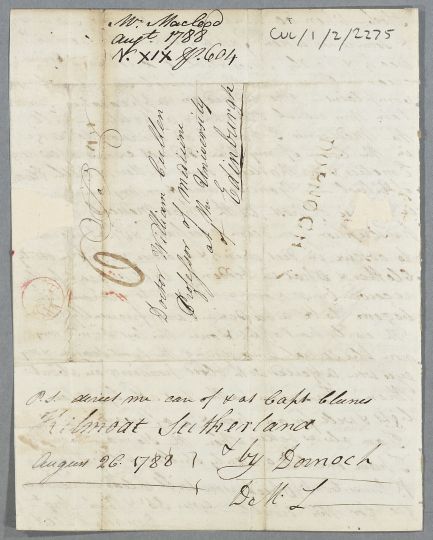 Mr. Macleod
augt 1788
N. XIX P. 604
CUL/1/2/2275
Doctor William Cullen
Professor of Medicine
at the University
of Edinburgh
DORNOCH
P.S. direct me care of & at Capt Clunes
Kilmoat Sutherland
August 26. 1788
by Dornoch